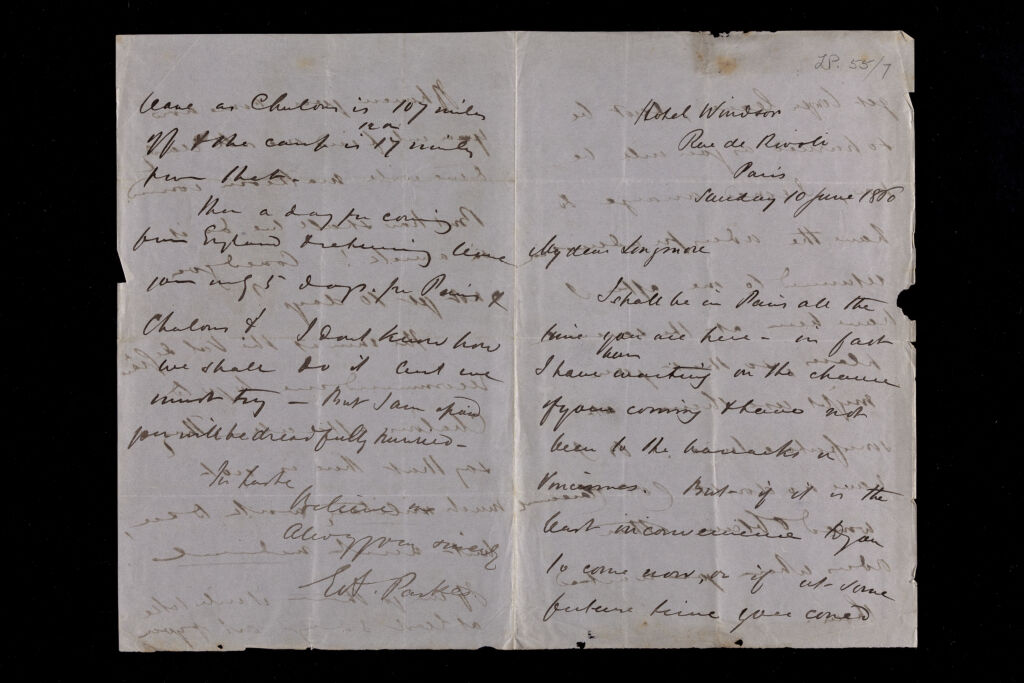 LP. 55/7
Hotel Windsor
Rue de Rivoli
Paris
Sunday 10 June 1860
My dear Longmore
I shall be in Paris all the
time you are here - in fact
I have been waiting on the chance
of your coming & have not
been to the barracks or
Vincennes. But if it is the
least inconvenience to you
to come now, or if at some
future time you could
leave as Chalons is 107 miles
off & the camp is 17 miles
from that.
Then a day for coming
from England & returning leave
you only 5 days for Paris &
Chalons &. I dont know how
we shall do it but we
must try - But I am afraid
you will be dreadfully hurried -
In haste
Believe me
Always yours sincerely
E A Parkes